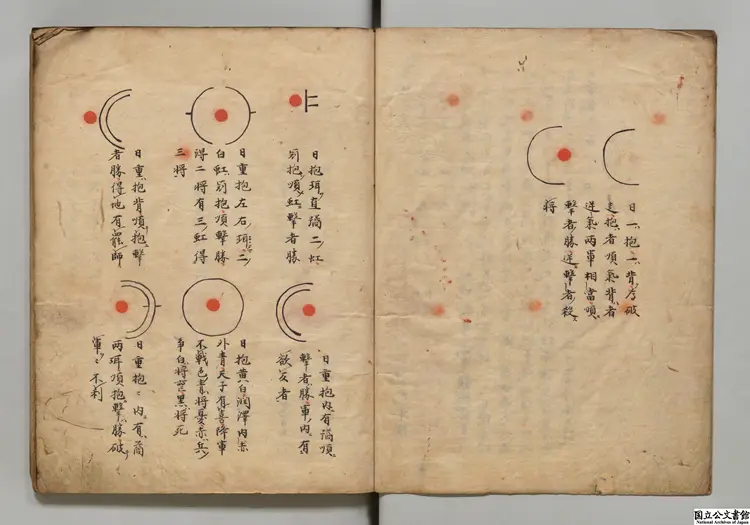 日一抱一背為破
走抱者順氣背者
逆氣兩軍相當順
擊者勝逆擊者殺
將
日抱珥直璚二虹
穿抱順虹擊者勝
日重抱左右珥二
白虹穿抱順擊勝
得二將有三虹得
三將
日重抱背順抱擊
者勝得地有罷師
日重抱内有璚順
擊者勝軍内有
欲反者
日抱黄白潤澤内赤
外青天子有喜降軍
不戰色青將憂赤兵
爭白將喪黒將死
日重抱〻内有璚
兩珥順抱擊勝破
軍〻不利
国立公文書館
National Archives of Japan